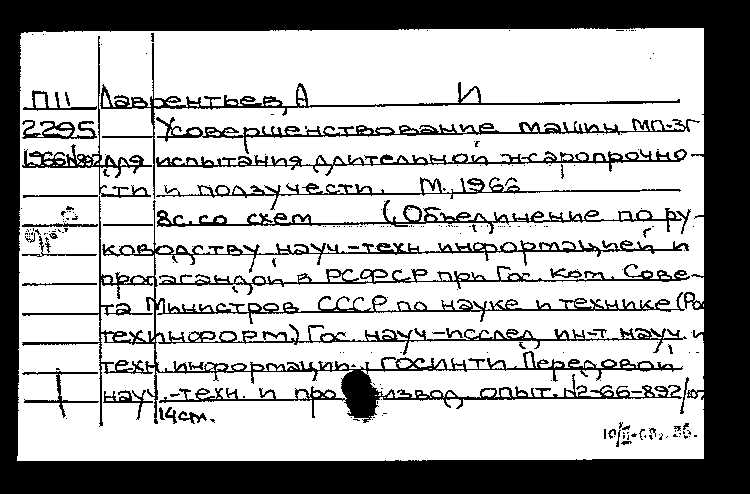 П11 Лаврентьев, А И
2295 Усовершенствование машин МП-3Г
1966№892 для испытания длительной жаропрочно-
сти и ползучести. М., 1966
8с. со схем (Объединение по ру-
ководству науч.-техн. информацией и
пропагандой в РСФСР при Гос. ком. Сове-
та Министров СССР по науке и технике (Рос
техинформ.) Гос. науч-исслед. ин-т науч. и
техн. информации. ГОСИНТИ. Передовой
науч.-техн. и производ. опыт. №2-66-892/
14см.